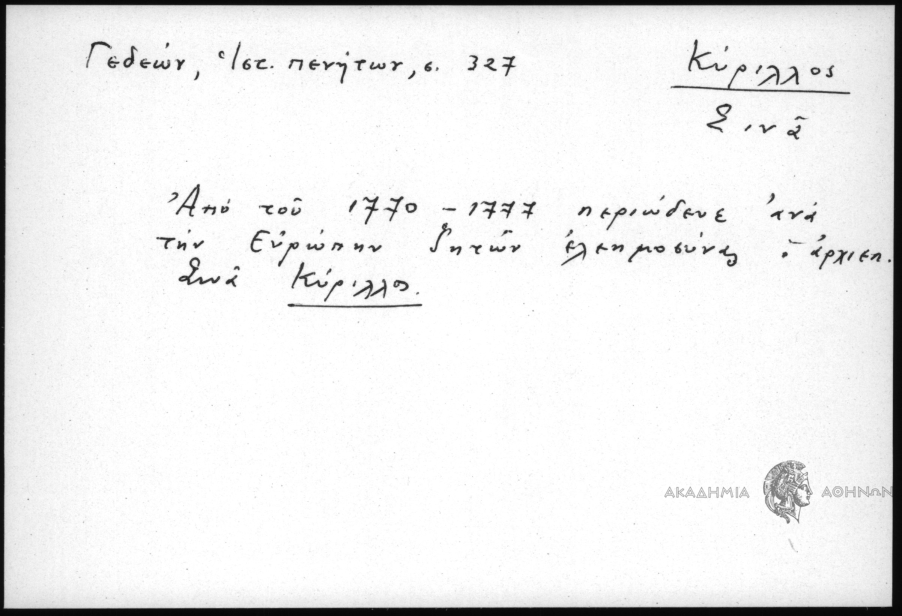 Γεδεών, Ἱστ. πενήτων, σ. 327
Κύριλλος
Σινᾶ
Ἀπό τοῦ 1770 - 1777 περιώδευε ἀνά
τήν Εὐρώπην ζητῶν ἐλεημοσύνας ὁ ἀρχιεπ.
Σινᾶ Κύριλλος.
ΑΚΑΔΗΜΙΑ ΑΘΗΝΩΝ